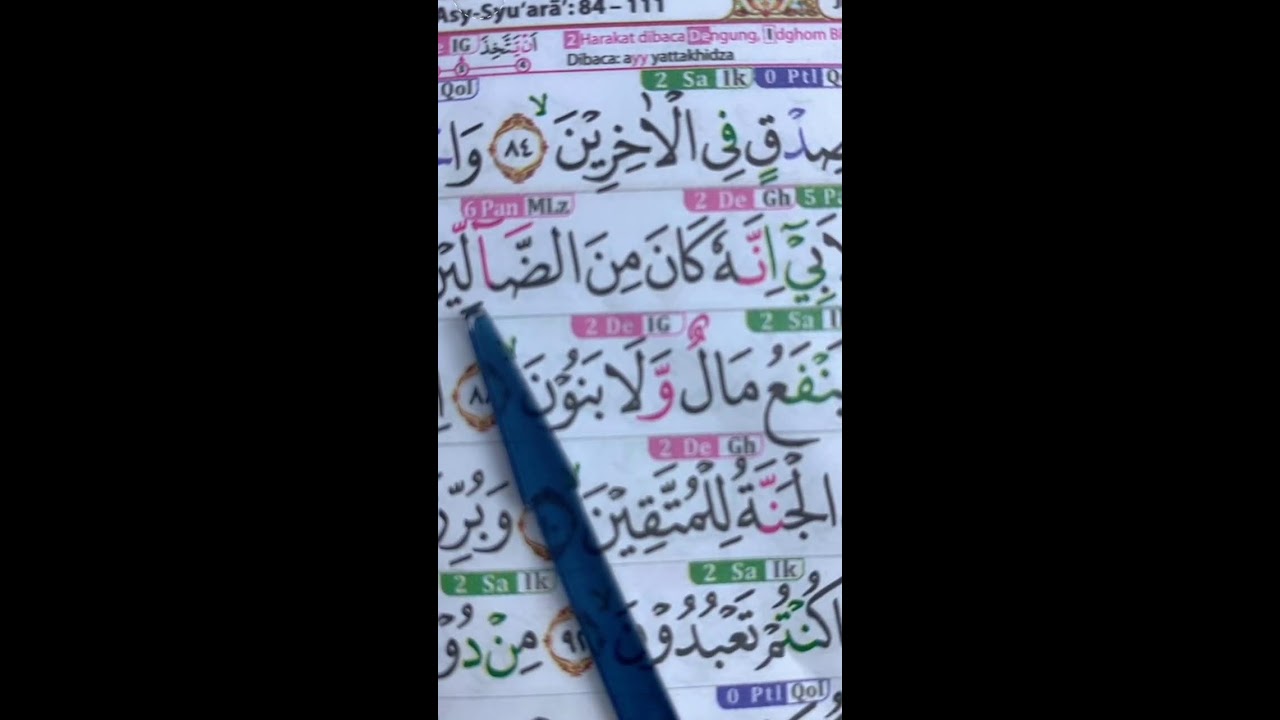 Asy-Syu'arā': 84 – 111
IG اَنْ يَّتَّخِذَ 2 Harakat dibaca Dengung, Idghom Bi
Dibaca: ayy yattakhidza
Qol 2 Sa Ik 0 Ptl Q
صِدْقٍ فِى الْاٰخِرِيْنَ ٨٤
6 Pan MLz 2 De Gh 5 Pa
لِاَبِيْٓ اِنَّهٗ كَانَ مِنَ الضَّاۤلِّيْنَ
2 De IG 2 Sa I
يَنْفَعُ مَالٌ وَّلَا بَنُوْنَ
2 De Gh
الْجَنَّةُ لِلْمُتَّقِيْنَ وَبُرِّ
2 Sa Ik 2 Sa Ik
كُنْتُمْ تَعْبُدُوْنَ ٩٢ مِنْ دُوْ
0 Ptl Qol